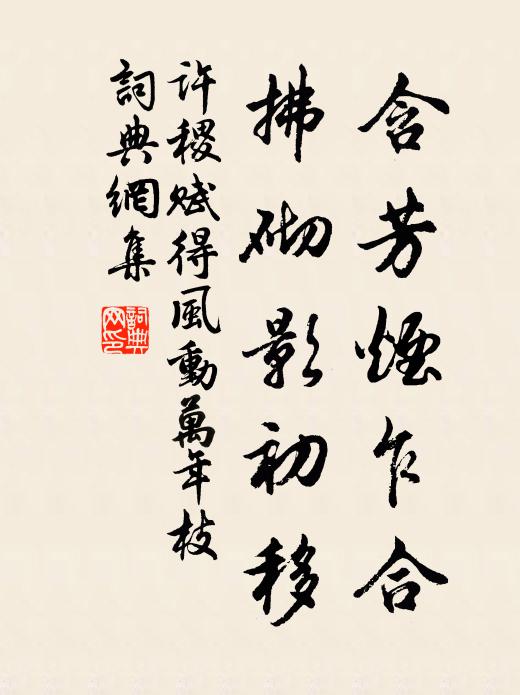 含芳煙乍合
拂砌影初移
許稷賦得風動萬年枝
詞典網集
詞典网印